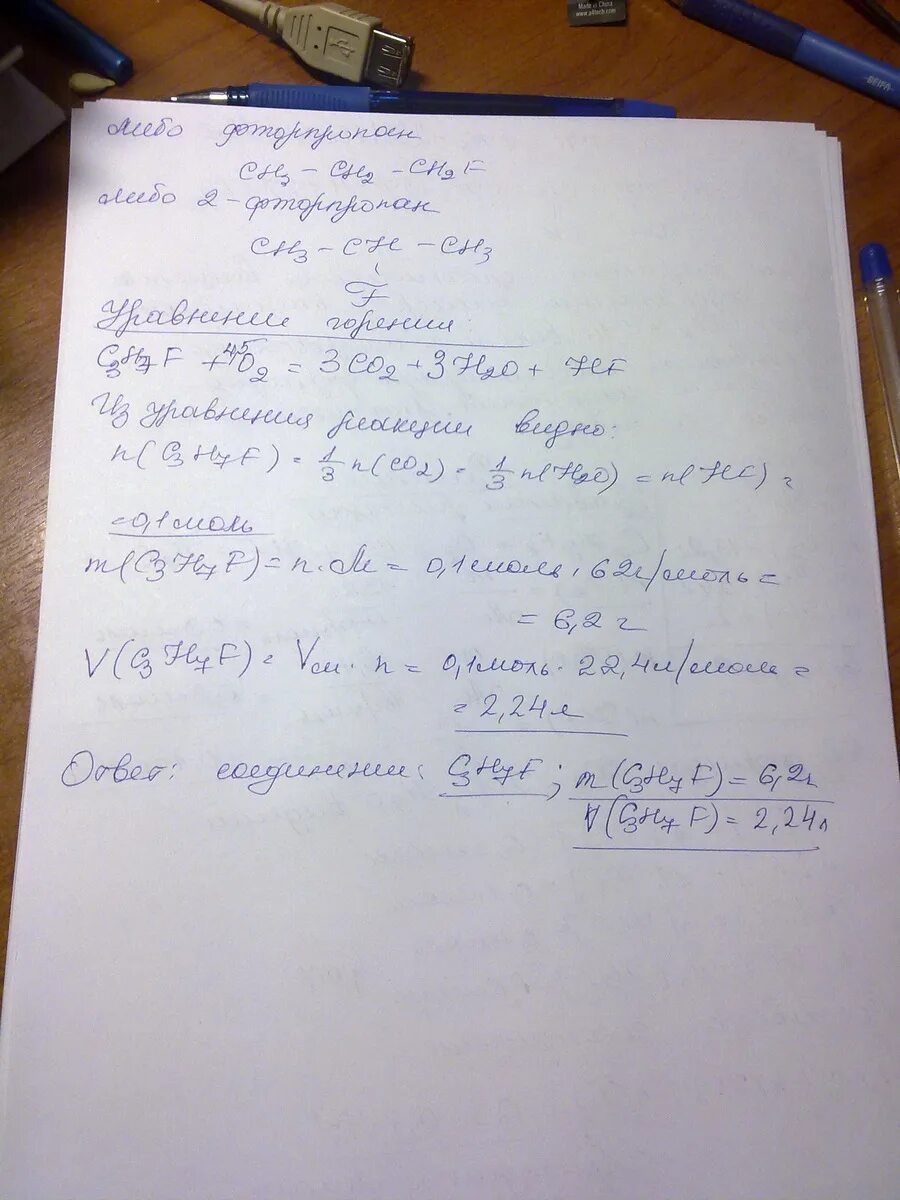 Made in China
www.a4tech.com
BEIFA
либо фторпропан
CH₃ – CH₂ – CH₂F
либо 2-фторпропан
CH₃ – CH – CH₃
F
Уравнение горения
C₃H₇F + 4,5O₂ = 3CO₂ + 3H₂O + HF
Из уравнения реакции видно:
n(C₃H₇F) = 1/3 n(CO₂) = 1/3 n(H₂O) = n(HF) =
= 0,1 моль
m(C₃H₇F) = n · M = 0,1 моль · 62 г/моль =
= 6,2 г
V(C₃H₇F) = Vм · n = 0,1 моль · 22,4 л/моль =
= 2,24 л
Ответ: соединение: C₃H₇F; m(C₃H₇F) = 6,2 г
V(C₃H₇F) = 2,24 л